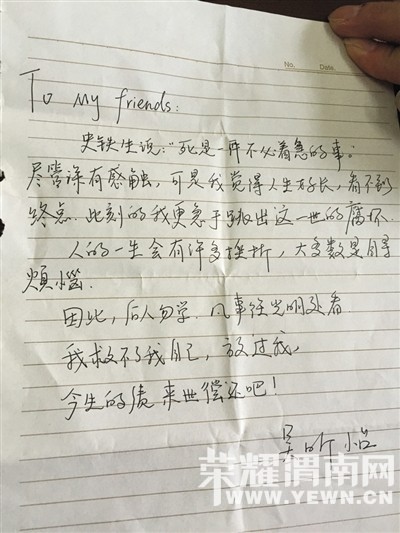 No.
Date.
To My friends:
史铁生说:"死是一件不必着急的事。"
尽管深有感触,可是我觉得人生好长,看不到
终点.此刻的我更急于跳出这一世的腐坏.
人的一生会有许多挫折,大多数是自寻
烦恼.
因此,后人勿学.凡事往光明处看.
我救不了我自己,放过我,
今生的债来世偿还吧!
吴昕怡
荣耀渭南网
WWW.YEWN.CN